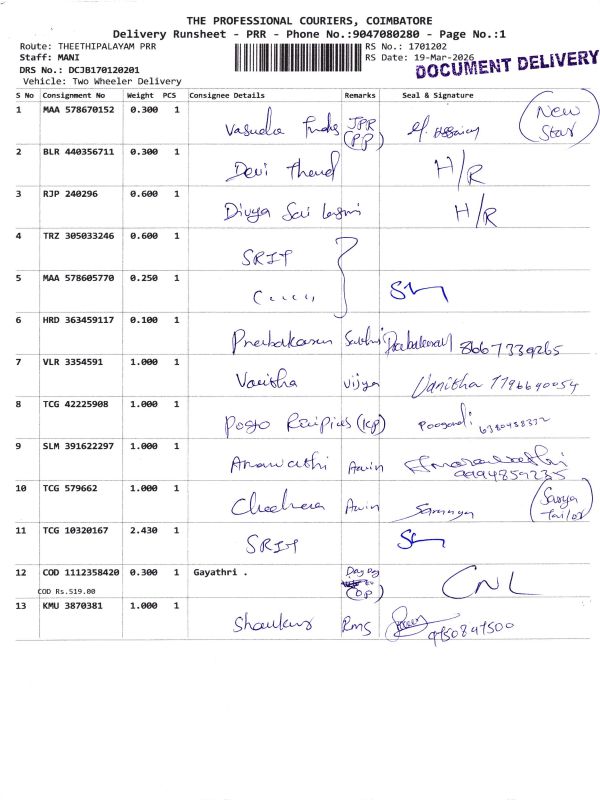 THE PROFESSIONAL COURIERS, COIMBATORE
Delivery Runsheet - PRR - Phone No.:9047080280 - Page No.:1
Route: THEETHIPALAYAM PRR
RS No.: 1701202
Staff: MANI
RS Date: 19-Mar-2026
DRS No.: DCJB170120201
DOCUMENT DELIVERY
Vehicle: Two Wheeler Delivery
S No Consignment No Weight PCS Consignee Details Remarks Seal & Signature
1 MAA 578670152 0.300 1 Vasudha JPR (PP) New Star
2 BLR 440356711 0.300 1 Devi H/R
3 RJP 240296 0.600 1 Divya Sai H/R
4 TRZ 305033246 0.600 1 SRIT
5 MAA 578605770 0.250 1
6 HRD 363459117 0.100 1 Prabakaran 8667339265
7 VLR 3354591 1.000 1 Vanitha Vijya Vanitha 7796640054
8 TCG 42225908 1.000 1 (KP) 6380458372
9 SLM 391622297 1.000 1 Amaravathi Aavin 9994859235
10 TCG 579662 1.000 1 Aavin Saranya (Sarya Tailor)
11 TCG 10320167 2.430 1 SRIT
12 COD 1112358420 0.300 1 Gayathri . (OP) CNL
COD Rs.519.00
13 KMU 3870381 1.000 1 Shankar Rms 9750897500